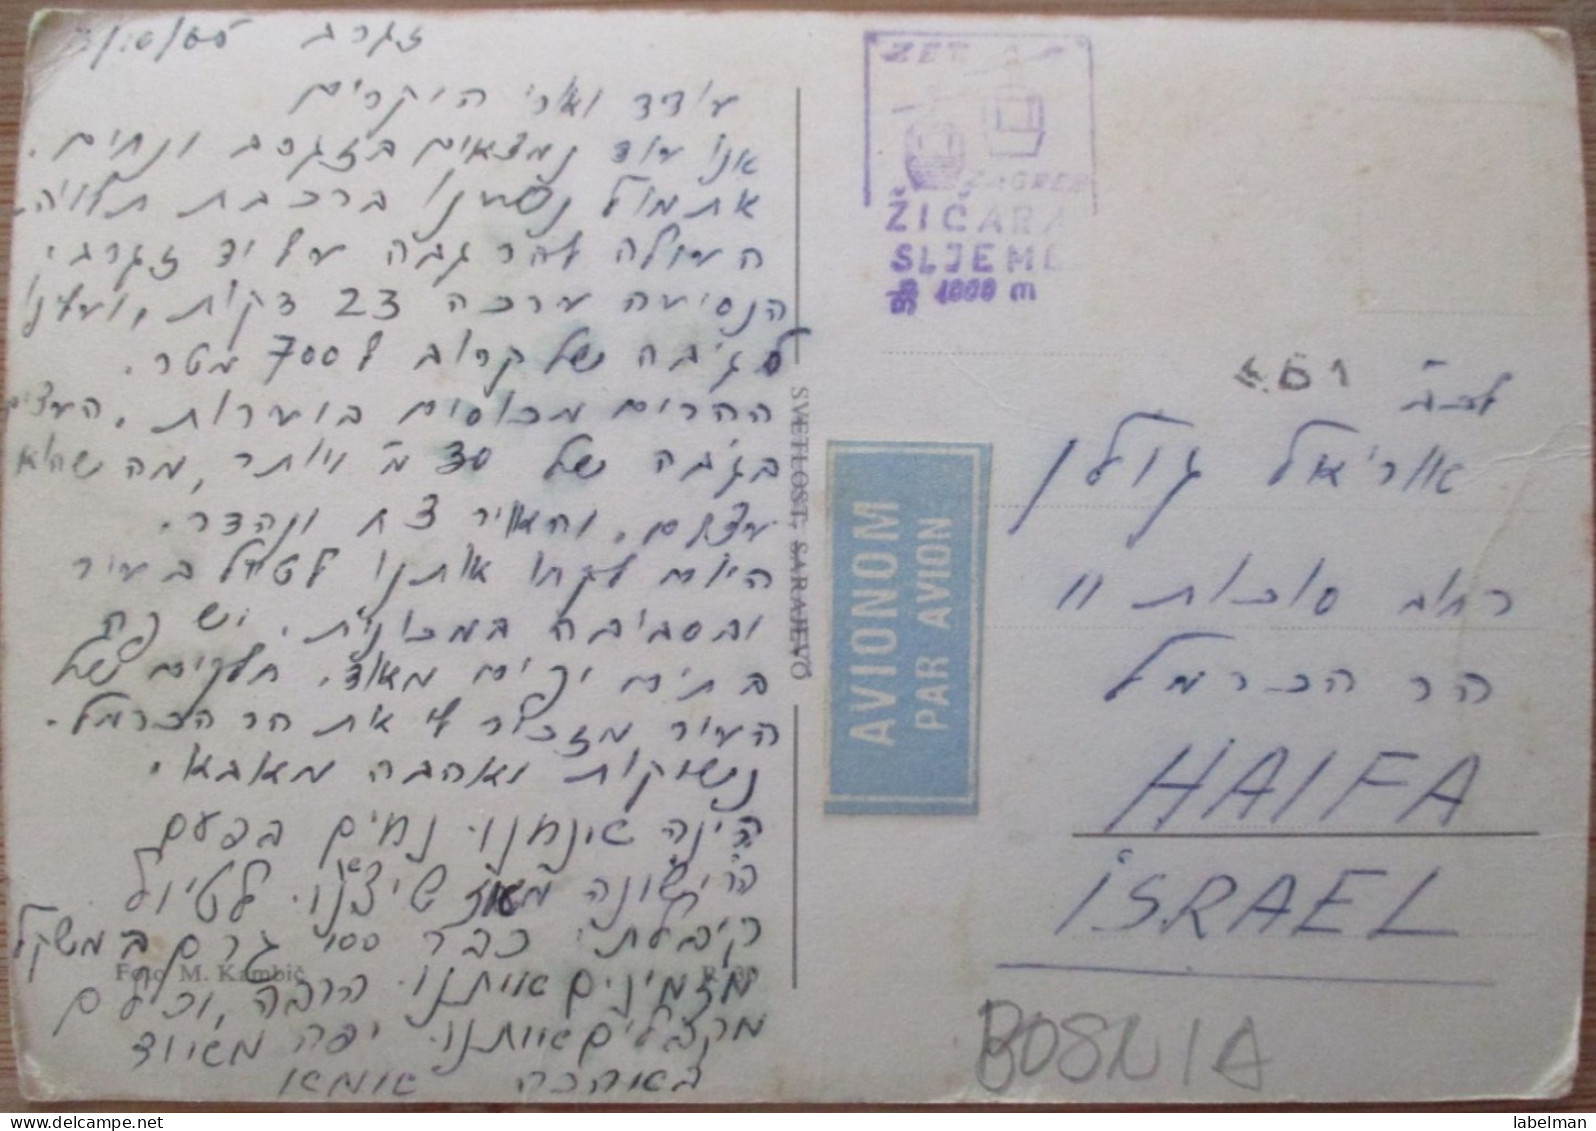 זגרב
עודד וארי היקרים
אנו עוד נמצאים בזגרב ונחים.
אתמול נסענו ברכבת תלויה,
העולה להר גבה על יד זגרב.
הנסיעה ערכה 23 דקות, ועלינו
לגובה של קרוב ל 700 מטר.
ההרים מכוסים ביערות, העצים
בגובה של 30 מ' ויותר, מה שהוא
עצום, והאויר צח ונהדר.
היום לקחו אותנו לטייל בעיר
ובסביבה במכונית. יש פה
בתים יפים מאוד. חלקים של
העיר מזכיר לי את הר הכרמל.
נשיקות ואהבה מאבא.
הינה אינחנו נחים בפעם
הרישונה מאז שיצאנו לטיול
קיבלתי כבר 100 גרם במשקל
מזמינים אויתנו הרבה, וכולם
מקבלים אויתנו יפה מאיוד
באהבה אימא
Foto M. Kambič
SVETLOST, SARAJEVO
ZET
ZAGREB
ŽIČARA
SLJEME
1000 m
AVIONOM
PAR AVION
לכב'
אוריאל גולן
רחוב סוכות 11
הר הכרמל
HAIFA
ISRAEL
BOSNIA
labelman
www.delcampe.net